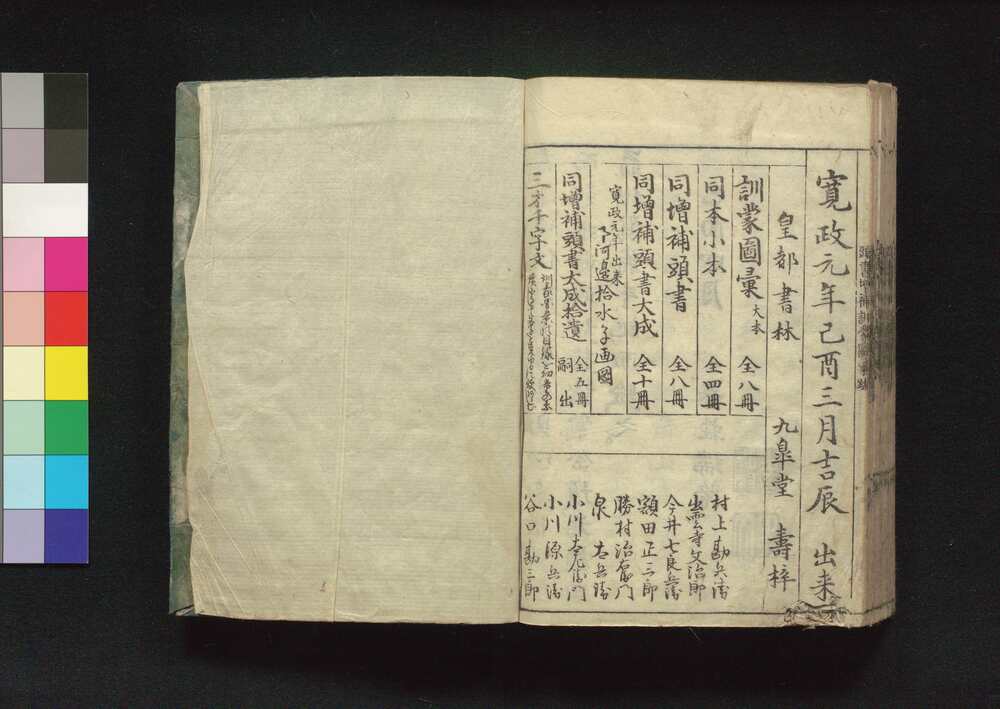 寛政元年己酉三月吉辰 出来
皇都書林 九皐堂 壽梓
訓蒙圖彙 大本 全八冊
同本小本 全四冊
同増補頭書 全八冊
同増補頭書大成 全十冊
寛政元年出来
下河邊拾水子画圖
同増補頭書大成拾遺 全五冊 嗣出
三才千字文
村上勘兵衛
出雲寺文治郎
今井七良兵衛
額田正三郎
勝村治右衛門
泉太兵衛
小川太左衛門
小川源兵衛
谷口勘三郎